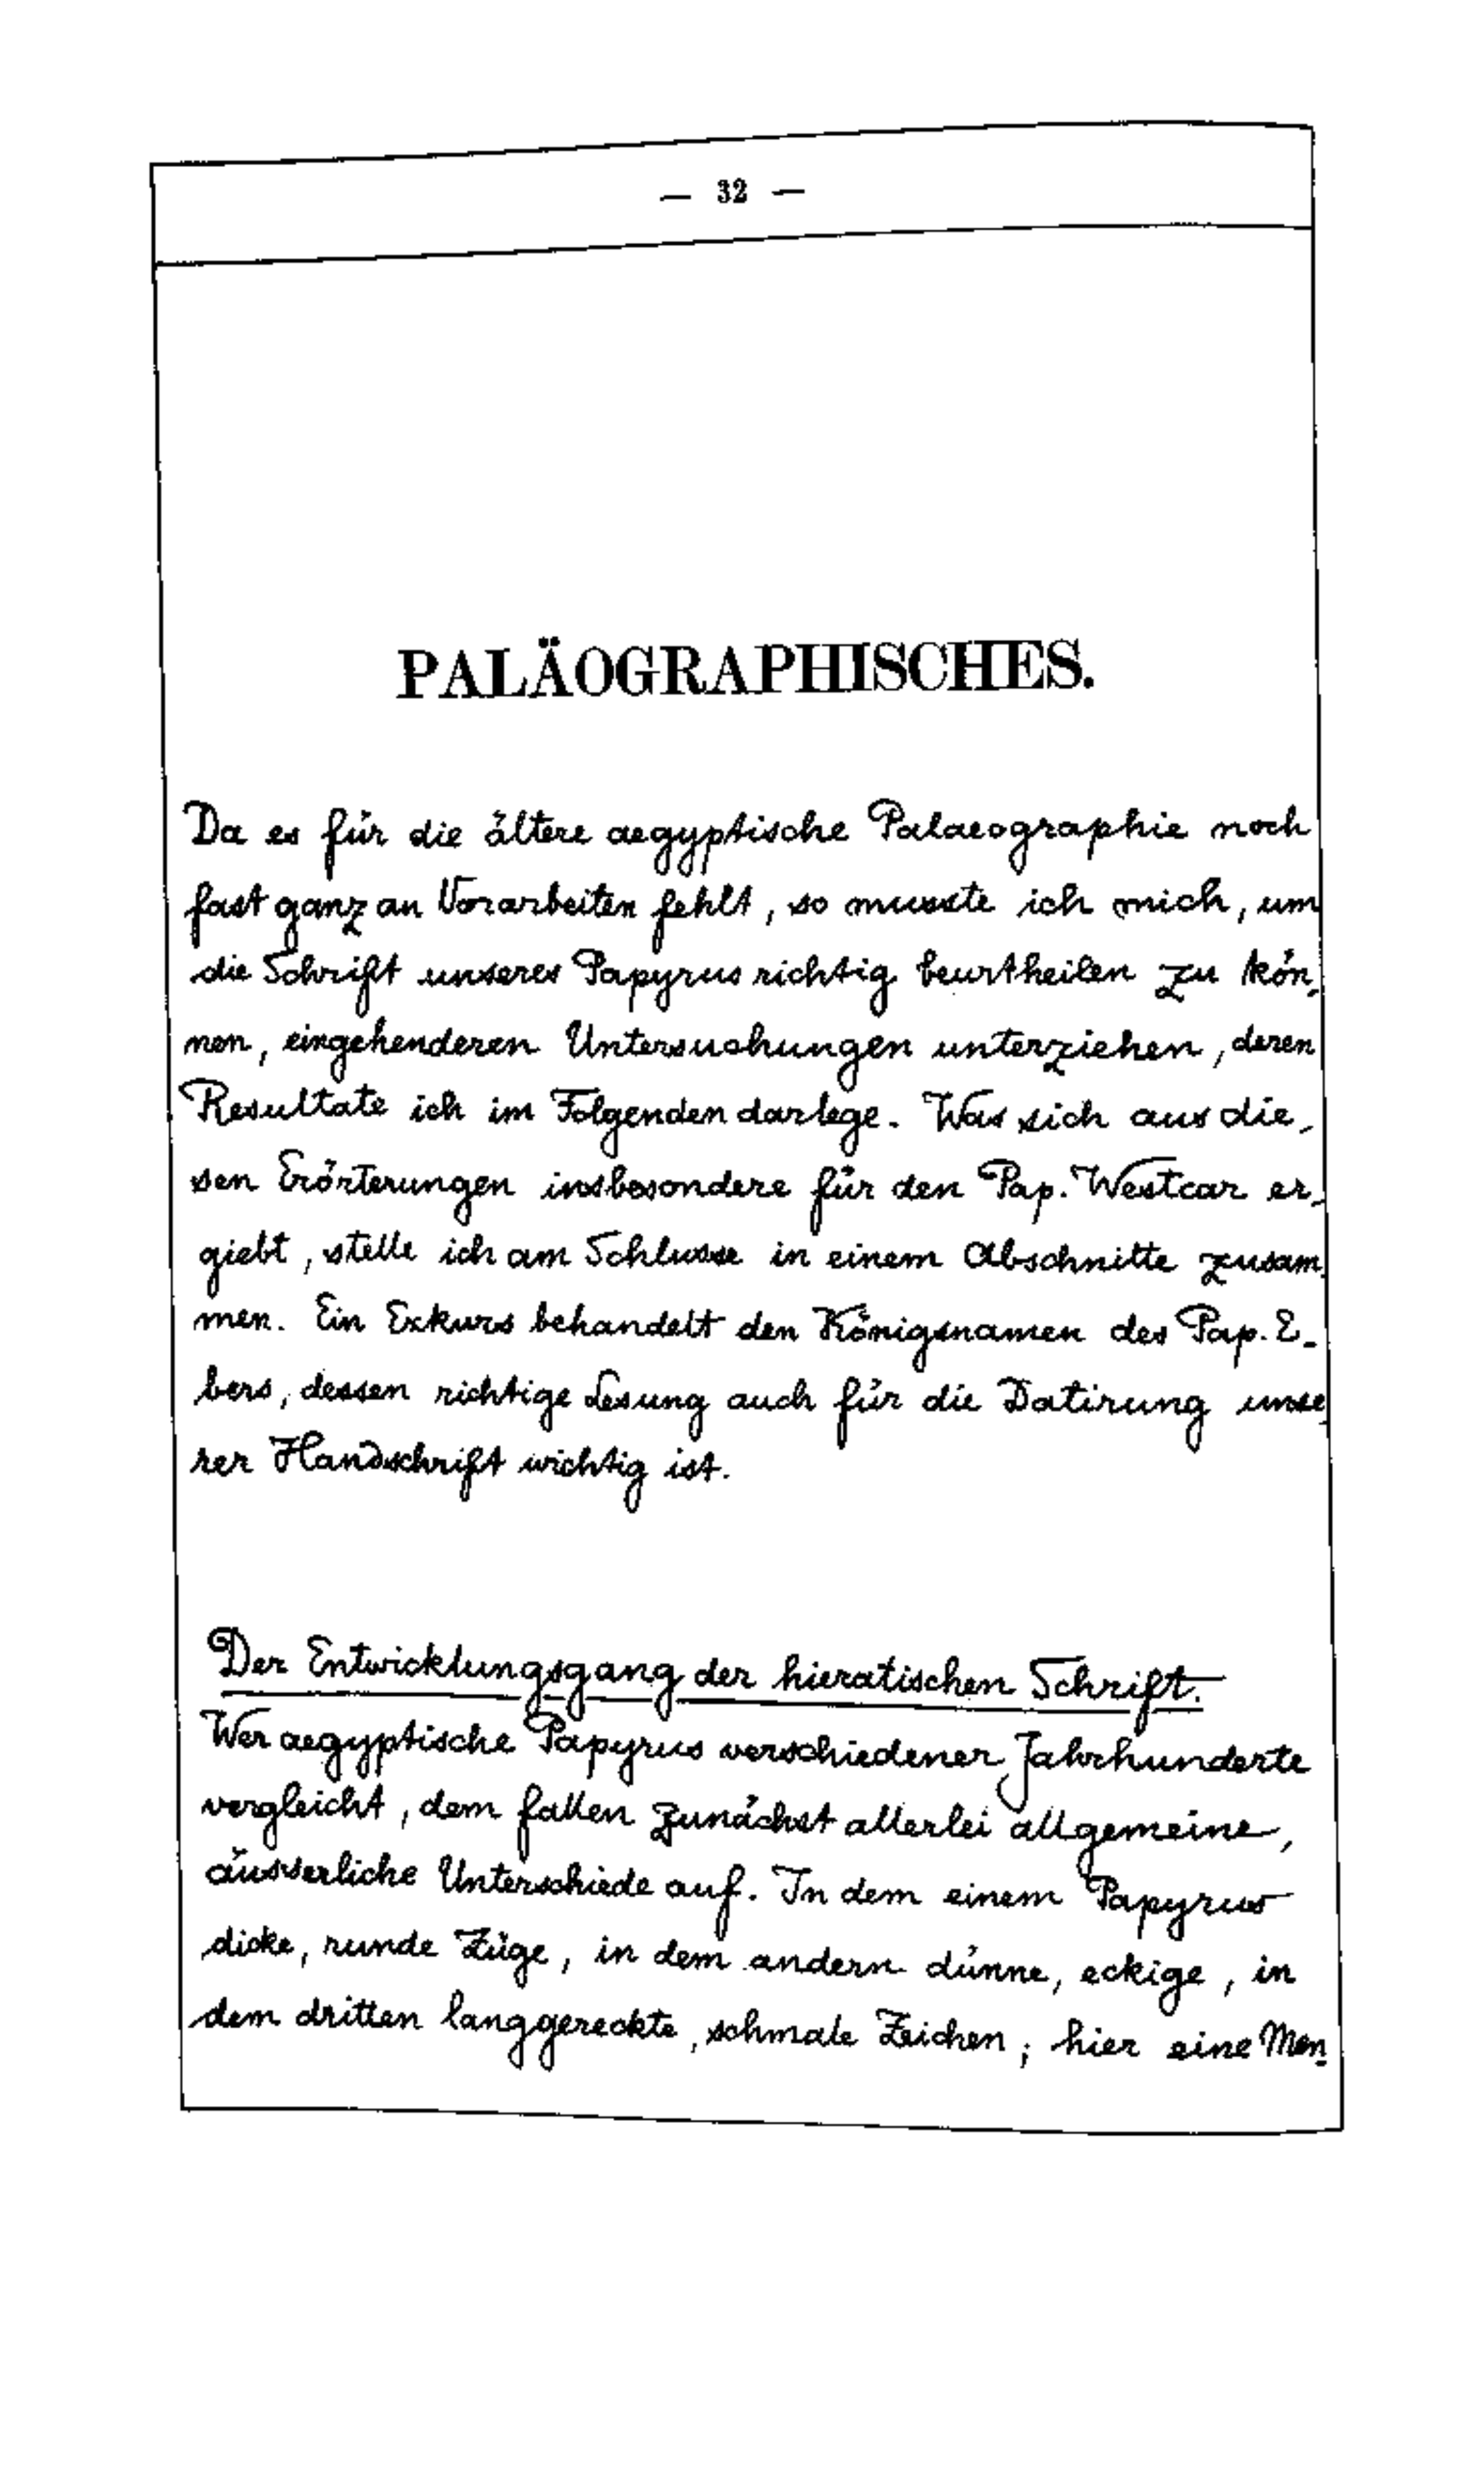 — 32 —
PALÄOGRAPHISCHES.
Da es für die ältere aegyptische Palaeographie noch
fast ganz an Vorarbeiten fehlt, so musste ich mich, um
die Schrift unseres Papyrus richtig beurtheilen zu kön-
nen, eingehenderen Untersuchungen unterziehen, deren
Resultate ich im Folgenden darlege. Was sich aus die-
sen Erörterungen insbesondere für den Pap. Westcar er-
giebt, stelle ich am Schlusse in einem Abschnitte zusam-
men. Ein Exkurs behandelt den Königsnamen des Pap. E-
bers, dessen richtige Lesung auch für die Datirung unse-
rer Handschrift wichtig ist.
Der Entwicklungsgang der hieratischen Schrift.
Wer aegyptische Papyrus verschiedener Jahrhunderte
vergleicht, dem fallen zunächst allerlei allgemeine,
äusserliche Unterschiede auf. In dem einem Papyrus
dicke, runde Züge, in dem andern dünne, eckige, in
dem dritten langgereckte, schmale Zeichen; hier eine Men-